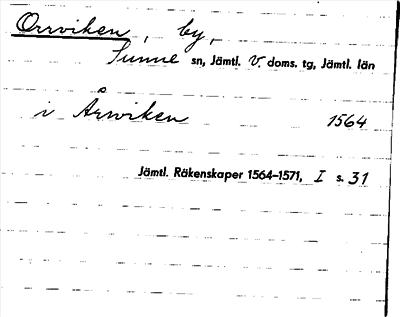 Orrviken, by,
Sunne sn, Jämtl. V. doms. tg, Jämtl. län
i Årwiken 1564
Jämtl. Räkenskaper 1564–1571, I s. 31